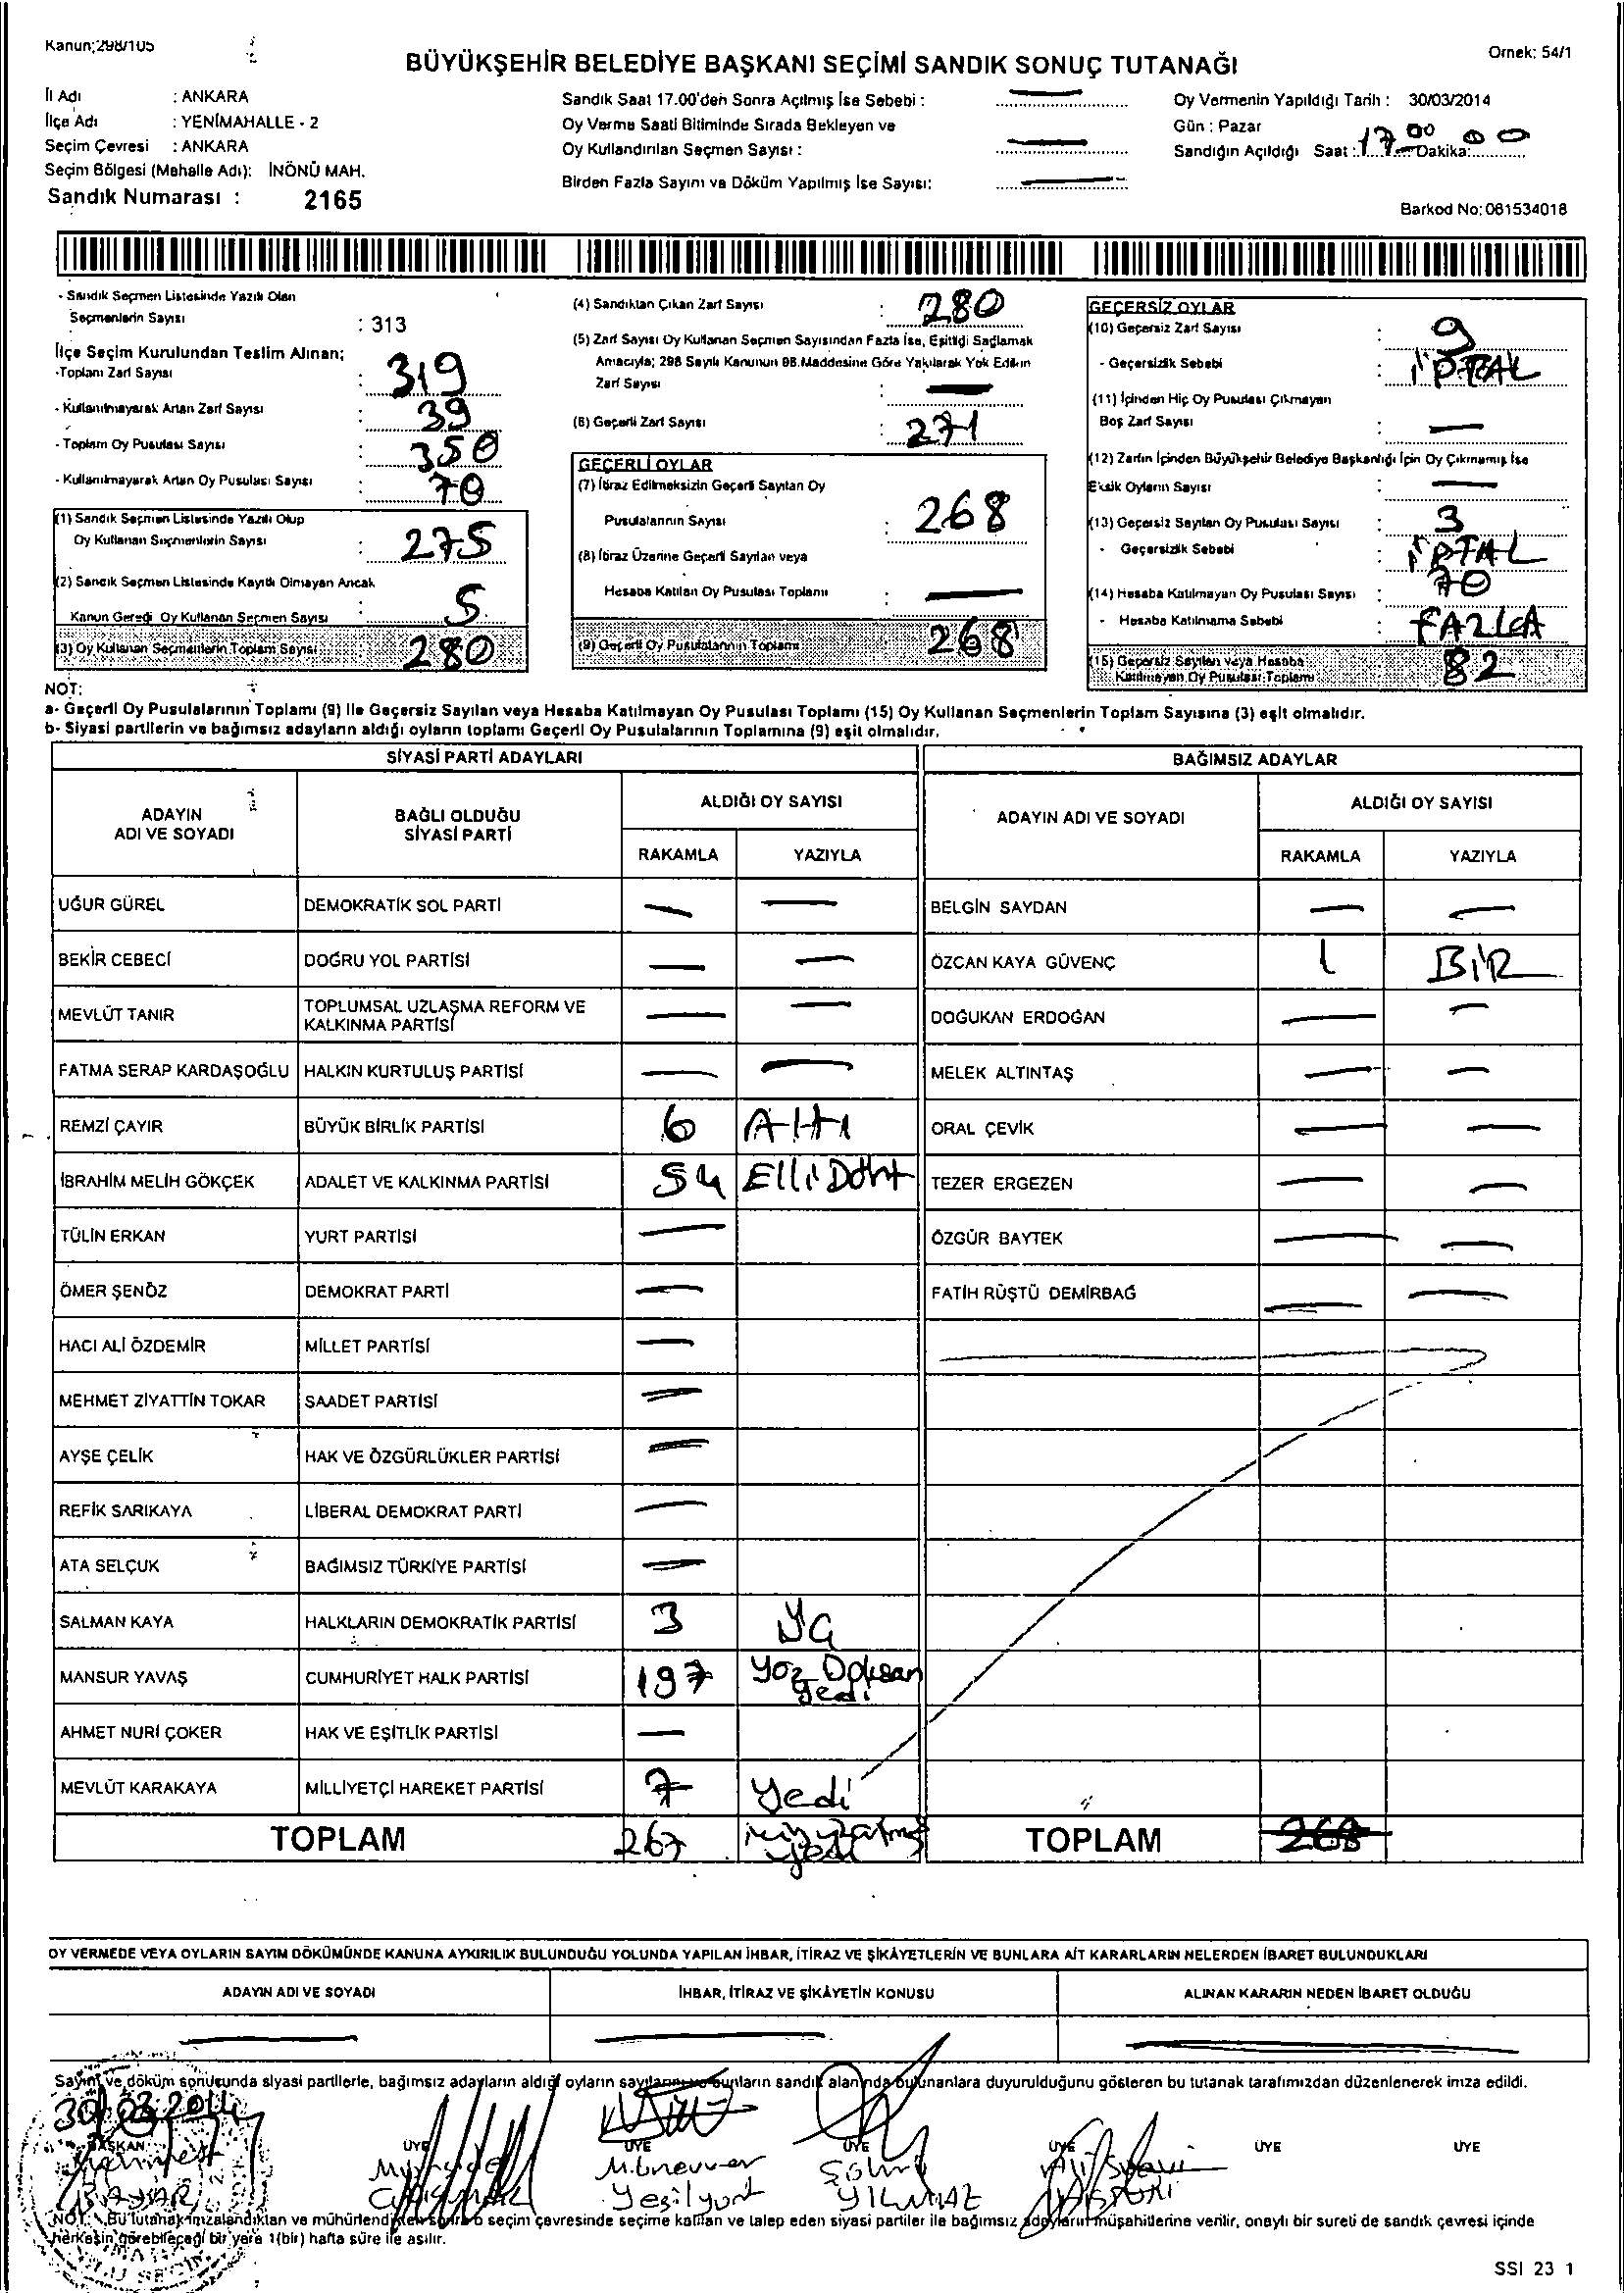 Kanun;298/105
Örnek: 54/1
BÜYÜKŞEHİR BELEDİYE BAŞKANI SEÇİMİ SANDIK SONUÇ TUTANAĞI
İl Adı : ANKARA
İlçe Adı : YENİMAHALLE - 2
Seçim Çevresi : ANKARA
Seçim Bölgesi (Mahalle Adı): İNÖNÜ MAH.
Sandık Numarası : 2165
Sandık Saat 17.00'den Sonra Açılmış İse Sebebi :
Oy Verme Saati Bitiminde Sırada Bekleyen ve
Oy Kullandırılan Seçmen Sayısı :
Birden Fazla Sayım ve Döküm Yapılmış İse Sayısı:
Oy Vermenin Yapıldığı Tarih : 30/03/2014
Gün : Pazar
Sandığın Açıldığı Saat : 17 00 Dakika: 00
Barkod No: 061534018
- Sandık Seçmen Listesinde Yazılı Olan
Seçmenlerin Sayısı : 313
İlçe Seçim Kurulundan Teslim Alınan;
-Toplam Zarf Sayısı : 319
- Kullanılmayarak Artan Zarf Sayısı : 39
- Toplam Oy Pusulası Sayısı : 350
- Kullanılmayarak Artan Oy Pusulası Sayısı : 70
(1) Sandık Seçmen Listesinde Yazılı Olup
Oy Kullanan Seçmenlerin Sayısı : 275
(2) Sandık Seçmen Listesinde Kayıtlı Olmayan Ancak
Kanun Gereği Oy Kullanan Seçmen Sayısı : 5
(3) Oy Kullanan Seçmenlerin Toplam Sayısı : 280
(4) Sandıktan Çıkan Zarf Sayısı : 280
(5) Zarf Sayısı Oy Kullanan Seçmen Sayısından Fazla İse, Eşitliği Sağlamak
Amacıyla; 298 Sayılı Kanunun 98.Maddesine Göre Yakılarak Yok Edilen
Zarf Sayısı :
(6) Geçerli Zarf Sayısı : 271
GEÇERLİ OYLAR
(7) İtiraz Edilmeksizin Geçerli Sayılan Oy
Pusulalarının Sayısı : 268
(8) İtiraz Üzerine Geçerli Sayılan veya
Hesaba Katılan Oy Pusulası Toplamı :
(9) Geçerli Oy Pusulalarının Toplamı 268
GEÇERSİZ OYLAR
(10) Geçersiz Zarf Sayısı : 9
- Geçersizlik Sebebi : İPTAL
(11) İçinden Hiç Oy Pusulası Çıkmayan
Boş Zarf Sayısı :
(12) Zarfın İçinden Büyükşehir Belediye Başkanlığı İçin Oy Çıkmamış İse
Eksik Oyların Sayısı :
(13) Geçersiz Sayılan Oy Pusulası Sayısı : 3
- Geçersizlik Sebebi : İPTAL
(14) Hesaba Katılmayan Oy Pusulası Sayısı : 70
- Hesaba Katılmama Sebebi : FAZLA
(15) Geçersiz Sayılan veya Hesaba
Katılmayan Oy Pusulası Toplamı 82
NOT:
a- Geçerli Oy Pusulalarının Toplamı (9) ile Geçersiz Sayılan veya Hesaba Katılmayan Oy Pusulası Toplamı (15) Oy Kullanan Seçmenlerin Toplam Sayısına (3) eşit olmalıdır.
b- Siyasi partilerin ve bağımsız adayların aldığı oyların toplamı Geçerli Oy Pusulalarının Toplamına (9) eşit olmalıdır.
SİYASİ PARTİ ADAYLARI
ADAYIN ADI VE SOYADI
BAĞLI OLDUĞU SİYASİ PARTİ
ALDIĞI OY SAYISI
RAKAMLA YAZIYLA
UĞUR GÜREL DEMOKRATİK SOL PARTİ
BEKİR CEBECİ DOĞRU YOL PARTİSİ
MEVLÜT TANIR TOPLUMSAL UZLAŞMA REFORM VE KALKINMA PARTİSİ
FATMA SERAP KARDAŞOĞLU HALKIN KURTULUŞ PARTİSİ
REMZİ ÇAYIR BÜYÜK BİRLİK PARTİSİ 6 Altı
İBRAHİM MELİH GÖKÇEK ADALET VE KALKINMA PARTİSİ 54 Elli Dört
TÜLİN ERKAN YURT PARTİSİ
ÖMER ŞENÖZ DEMOKRAT PARTİ
HACI ALİ ÖZDEMİR MİLLET PARTİSİ
MEHMET ZİYATTİN TOKAR SAADET PARTİSİ
AYŞE ÇELİK HAK VE ÖZGÜRLÜKLER PARTİSİ
REFİK SARIKAYA LİBERAL DEMOKRAT PARTİ
ATA SELÇUK BAĞIMSIZ TÜRKİYE PARTİSİ
SALMAN KAYA HALKLARIN DEMOKRATİK PARTİSİ 3
MANSUR YAVAŞ CUMHURİYET HALK PARTİSİ 197 Yüz Doksan yedi
AHMET NURİ ÇOKER HAK VE EŞİTLİK PARTİSİ
MEVLÜT KARAKAYA MİLLİYETÇİ HAREKET PARTİSİ 7 Yedi
TOPLAM 267 yedi
BAĞIMSIZ ADAYLAR
ADAYIN ADI VE SOYADI
ALDIĞI OY SAYISI
RAKAMLA YAZIYLA
BELGİN SAYDAN
ÖZCAN KAYA GÜVENÇ 1 BİR
DOĞUKAN ERDOĞAN
MELEK ALTINTAŞ
ORAL ÇEVİK
TEZER ERGEZEN
ÖZGÜR BAYTEK
FATİH RÜŞTÜ DEMİRBAĞ
TOPLAM 268
OY VERMEDE VEYA OYLARIN SAYIM DÖKÜMÜNDE KANUNA AYKIRILIK BULUNDUĞU YOLUNDA YAPILAN İHBAR, İTİRAZ VE ŞİKÂYETLERİN VE BUNLARA AİT KARARLARIN NELERDEN İBARET BULUNDUKLARI
ADAYIN ADI VE SOYADI İHBAR, İTİRAZ VE ŞİKÂYETİN KONUSU ALINAN KARARIN NEDEN İBARET OLDUĞU
Sayım ve döküm sonucunda siyasi partilerle, bağımsız adayların aldığı oyların sayılarını ve bunların sandık alanında bulunanlara duyurulduğunu gösteren bu tutanak tarafımızdan düzenlenerek imza edildi.
30/03/2014
BAŞKAN ÜYE ÜYE ÜYE ÜYE ÜYE ÜYE
Münevver
BAYAR Yeşilyurt YILMAZ
NOT: Bu tutanak imzalandıktan ve mühürlendikten sonra o seçim çevresinde seçime katılan ve talep eden siyasi partiler ile bağımsız adayların müşahitlerine verilir, onaylı bir sureti de sandık çevresi içinde
herkesin görebileceği bir yere 1(bir) hafta süre ile asılır.
SSI 23 1